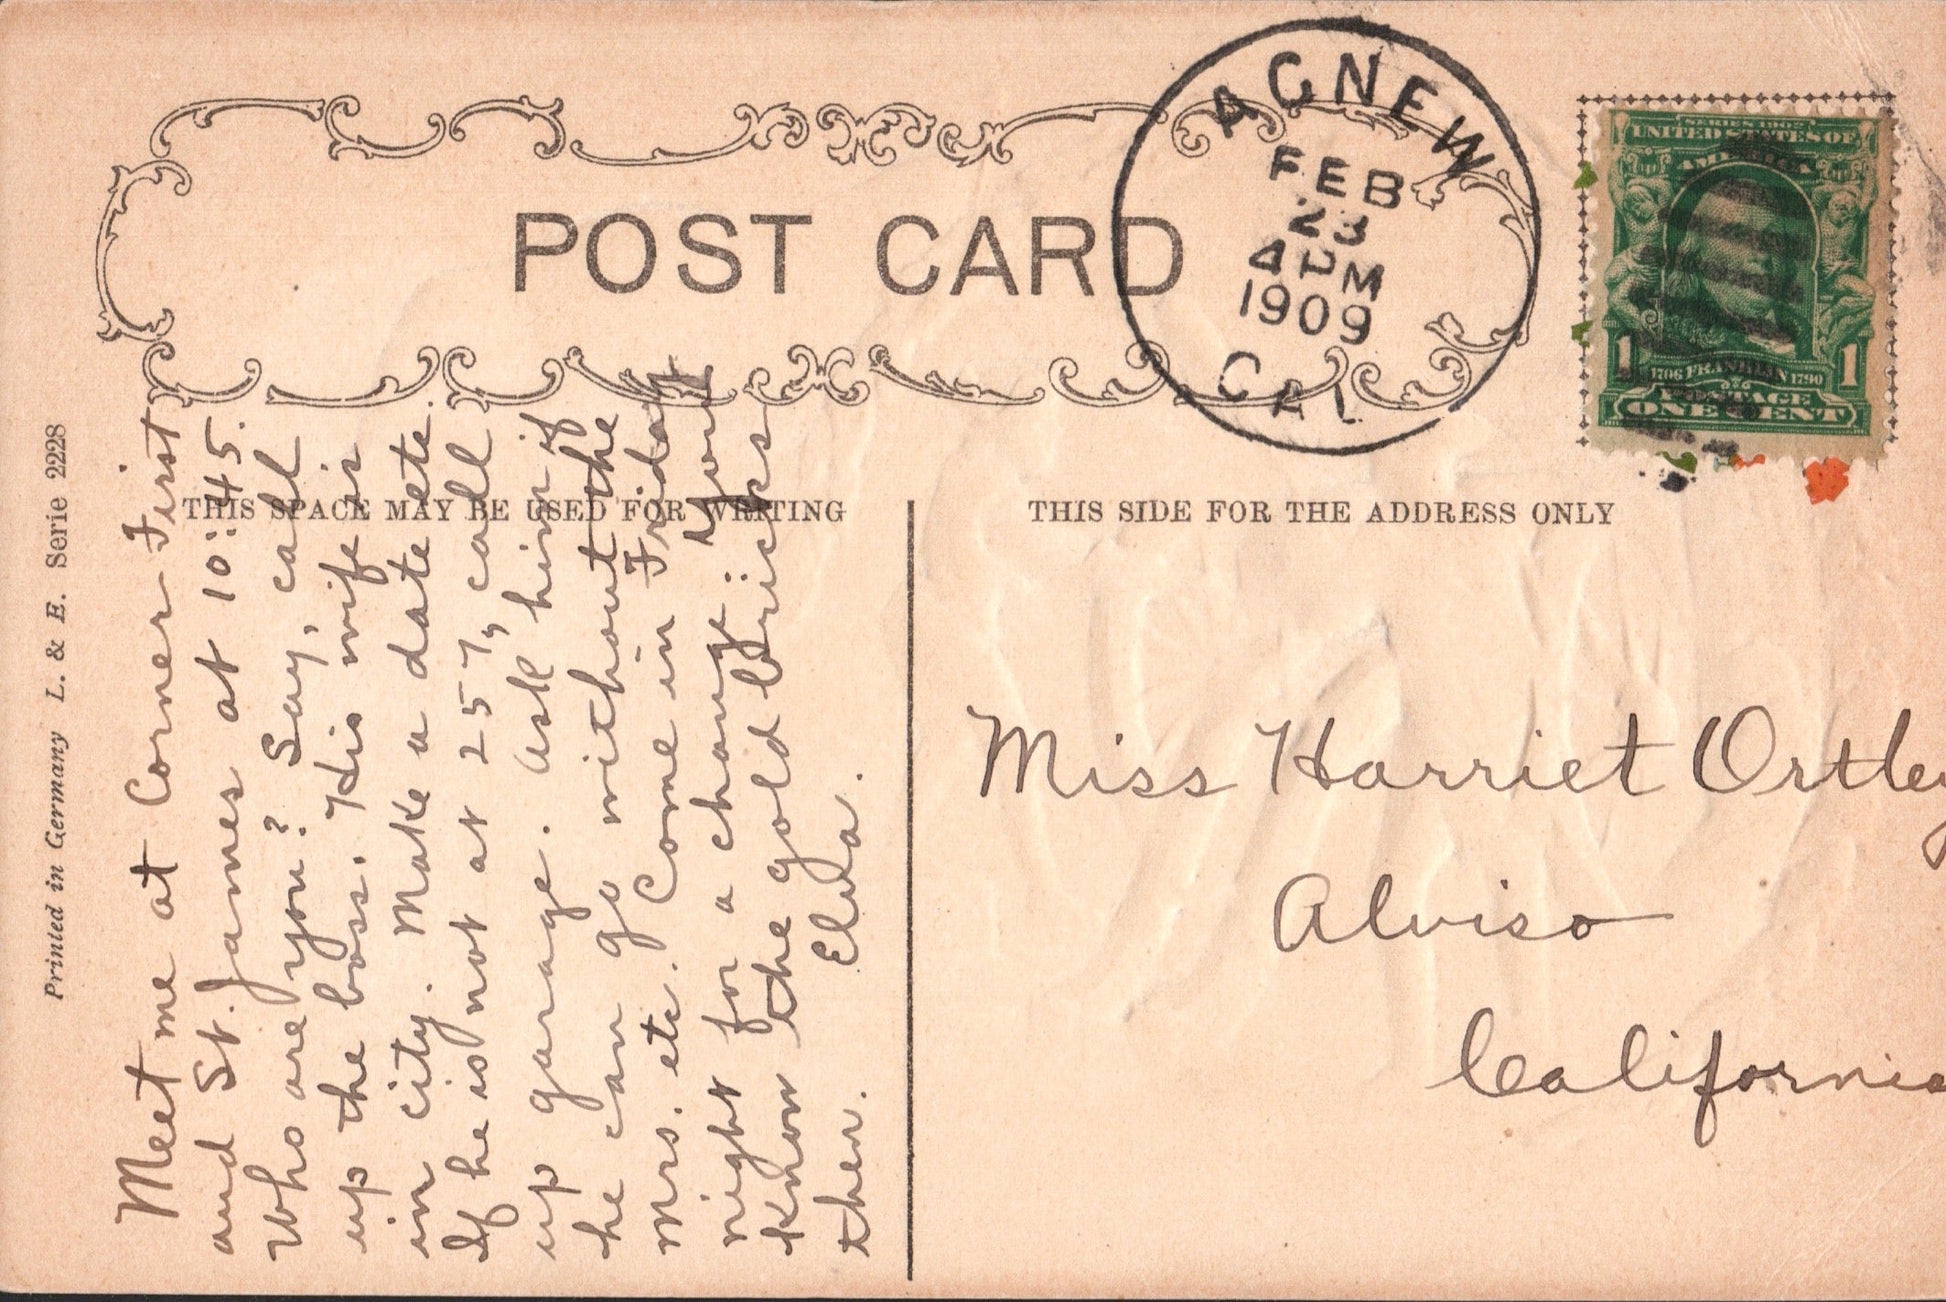 POST CARD
AGNEW
FEB
23
4 PM
1909
CAL
SERIES 1902
UNITED STATES OF
AMERICA
1 1706 FRANKLIN 1790 1
POSTAGE
ONE CENT
THIS SPACE MAY BE USED FOR WRITING
THIS SIDE FOR THE ADDRESS ONLY
Printed in Germany L. & E. Serie 2228
Meet me at Corner First
and St. James at 10:45.
Who are you? Say, call
up the boss. His wife is
in city. Make a date etc.
If he is not at 257, call
up garage. Ask him if
he can go without the
Mrs. etc. Come in Friday
night for a change. You
know the gold bricks
then. Elva.
Miss Harriet Ortley
Alviso
California